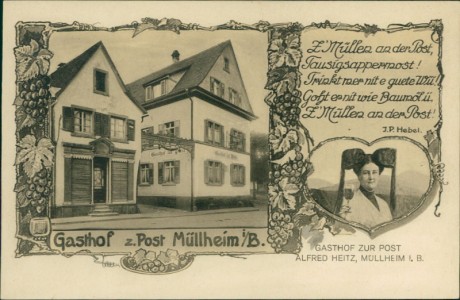 Z'Müllen an der Post,
Tausigsappermost!
Trinkt mer nit e guete Wii!
Goht er nit wie Baumöl ii,
Z'Müllen an der Post!
J.P. Hebel.
Gasthof z. Post Müllheim i/B.
GASTHOF ZUR POST
ALFRED HEITZ, MÜLLHEIM I. B.